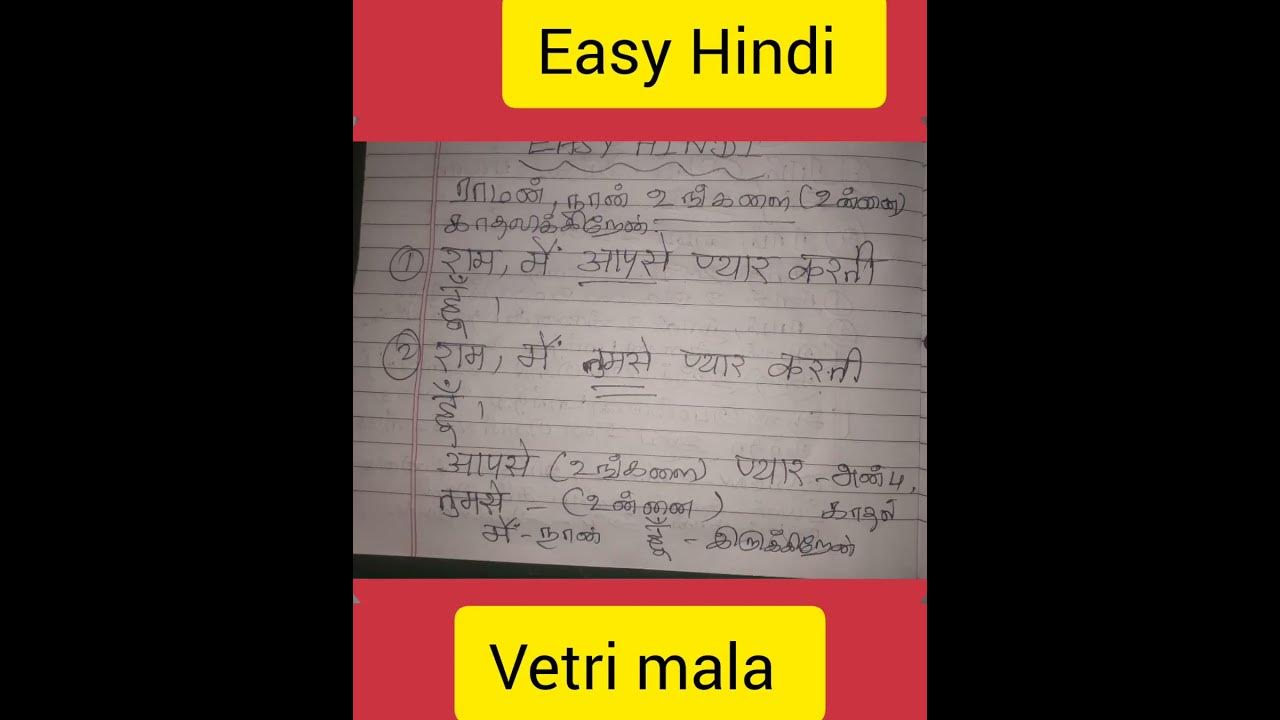 Easy Hindi
EASY HINDI
ராமன், நான் உங்களை (உன்னை)
காதலிக்கிறேன்.
① राम, मैं आपसे प्यार करती
हूँ ।
② राम, मैं तुमसे प्यार करती
हूँ ।
आपसे (உங்களை) प्यार - அன்பு,
तुमसे - (உன்னை) காதல்
मैं - நான் हूँ - இருக்கிறேன்
Vetri mala